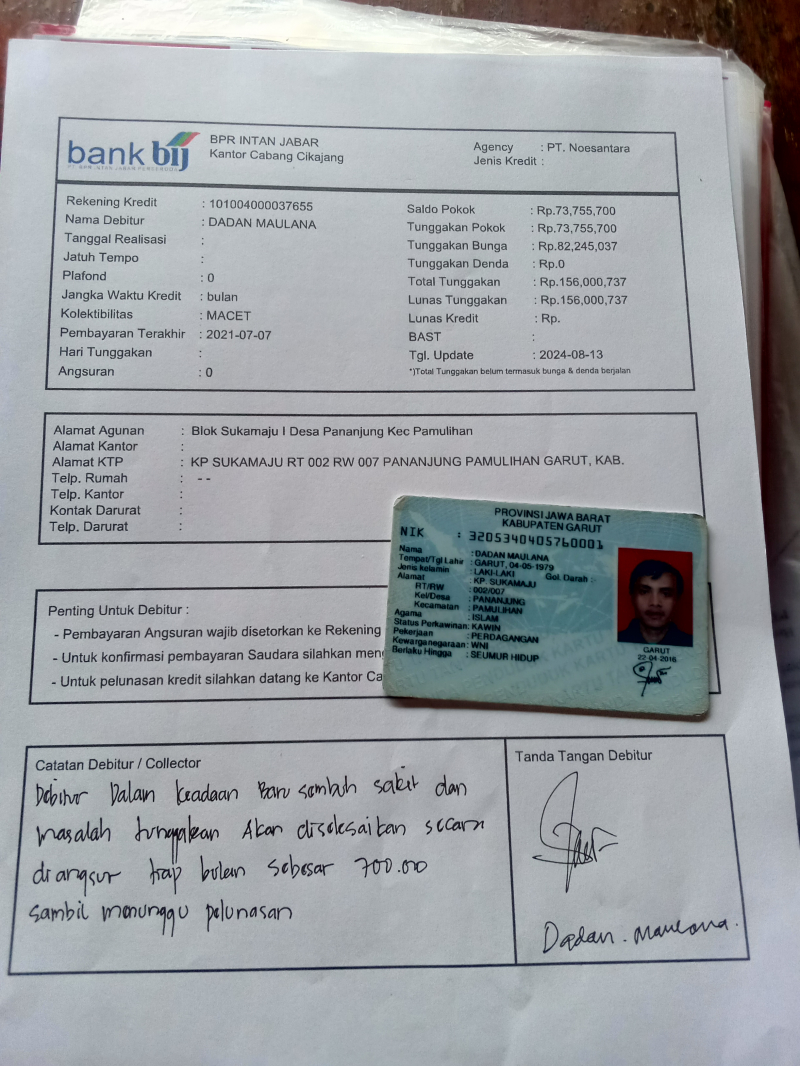 bank bij
BPR INTAN JABAR
Kantor Cabang Cikajang
Agency : PT. Noesantara
Jenis Kredit :
Rekening Kredit : 101004000037655
Nama Debitur : DADAN MAULANA
Tanggal Realisasi :
Jatuh Tempo :
Plafond : 0
Jangka Waktu Kredit : bulan
Kolektibilitas : MACET
Pembayaran Terakhir : 2021-07-07
Hari Tunggakan :
Angsuran : 0
Saldo Pokok : Rp.73,755,700
Tunggakan Pokok : Rp.73,755,700
Tunggakan Bunga : Rp.82,245,037
Tunggakan Denda : Rp.0
Total Tunggakan : Rp.156,000,737
Lunas Tunggakan : Rp.156,000,737
Lunas Kredit : Rp.
BAST :
Tgl. Update : 2024-08-13
*)Total Tunggakan belum termasuk bunga & denda berjalan
Alamat Agunan : Blok Sukamaju I Desa Pananjung Kec Pamulihan
Alamat Kantor :
Alamat KTP : KP SUKAMAJU RT 002 RW 007 PANANJUNG PAMULIHAN GARUT, KAB.
Telp. Rumah : - -
Telp. Kantor :
Kontak Darurat :
Telp. Darurat :
PROVINSI JAWA BARAT
KABUPATEN GARUT
NIK : 3205340405760001
Nama : DADAN MAULANA
Tempat/Tgl Lahir : GARUT, 04-05-1979
Jenis kelamin : LAKI-LAKI Gol. Darah : -
Alamat : KP. SUKAMAJU
RT/RW : 002/007
Kel/Desa : PANANJUNG
Kecamatan : PAMULIHAN
Agama : ISLAM
Status Perkawinan: KAWIN
Pekerjaan : PERDAGANGAN
Kewarganegaraan: WNI
Berlaku Hingga : SEUMUR HIDUP
GARUT
22-04-2016
Penting Untuk Debitur :
- Pembayaran Angsuran wajib disetorkan ke Rekening
- Untuk konfirmasi pembayaran Saudara silahkan
- Untuk pelunasan kredit silahkan datang ke Kantor
Catatan Debitur / Collector
Debitur Dalam keadaan Baru sembuh sakit dan
masalah tunggakan Akan diselesaikan secara
diangsur tiap bulan sebesar 700.000
sambil menunggu pelunasan
Tanda Tangan Debitur
Dadan. Maulana.